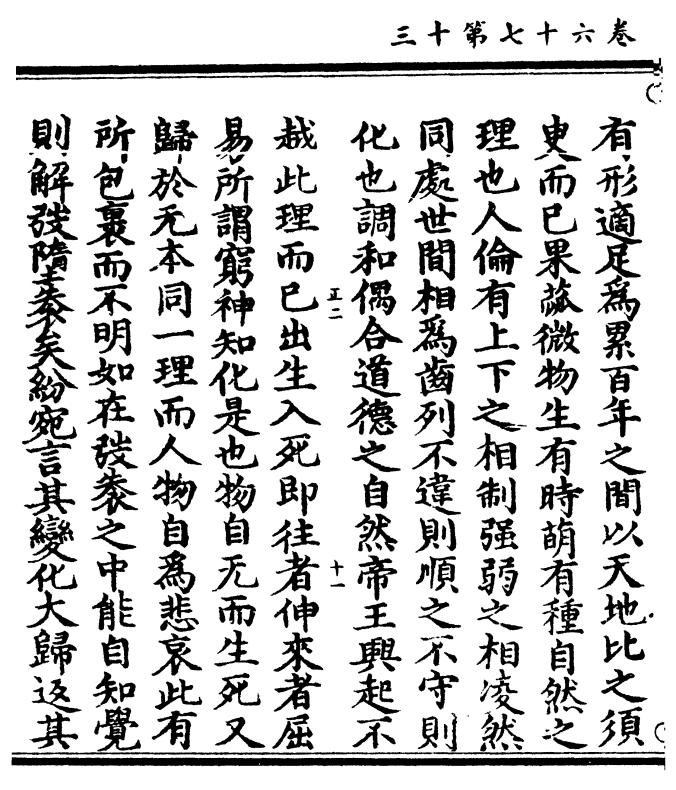 卷六十七第十三
有形適足為累百年之間以天地比之須
臾而已果蓏微物生有時萌有種自然之
理也人倫有上下之相制强弱之相凌然
同處世間相為齒列不違則順之不守則
化也調和偶合道德之自然帝王興起不
越此理而已出生入死即往者伸來者屈
正二
十一
易所謂窮神知化是也物自无而生死又
歸於无本同一理而人物自為悲哀此有
所包裹而不明如在弢袠之中能自知覺
則解弢隋袠矣紛宛言其變化大歸返其